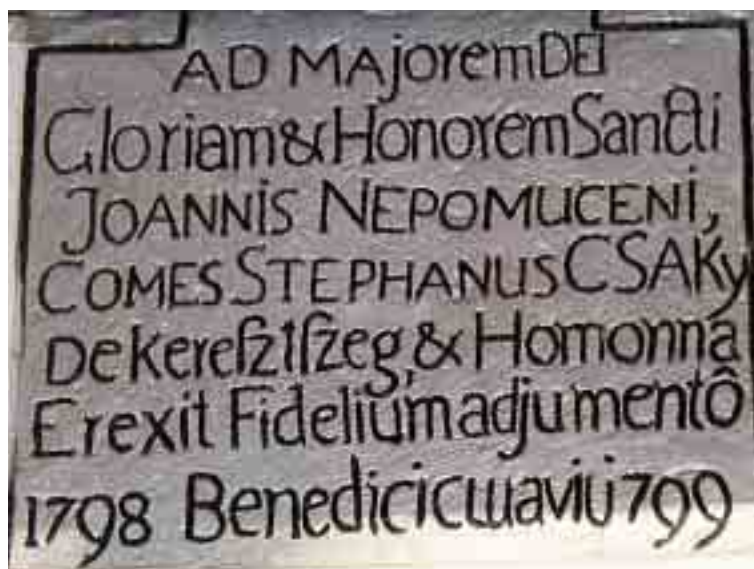 AD MAjoremDEI
Gloriam&HonoremSancti
JOANNiS NEPOMUCENi,
COMES STEPHANUS CSAKy
De kereſztſzeg, & Homonna
Erexit Fidelium adjumentô
1798 799